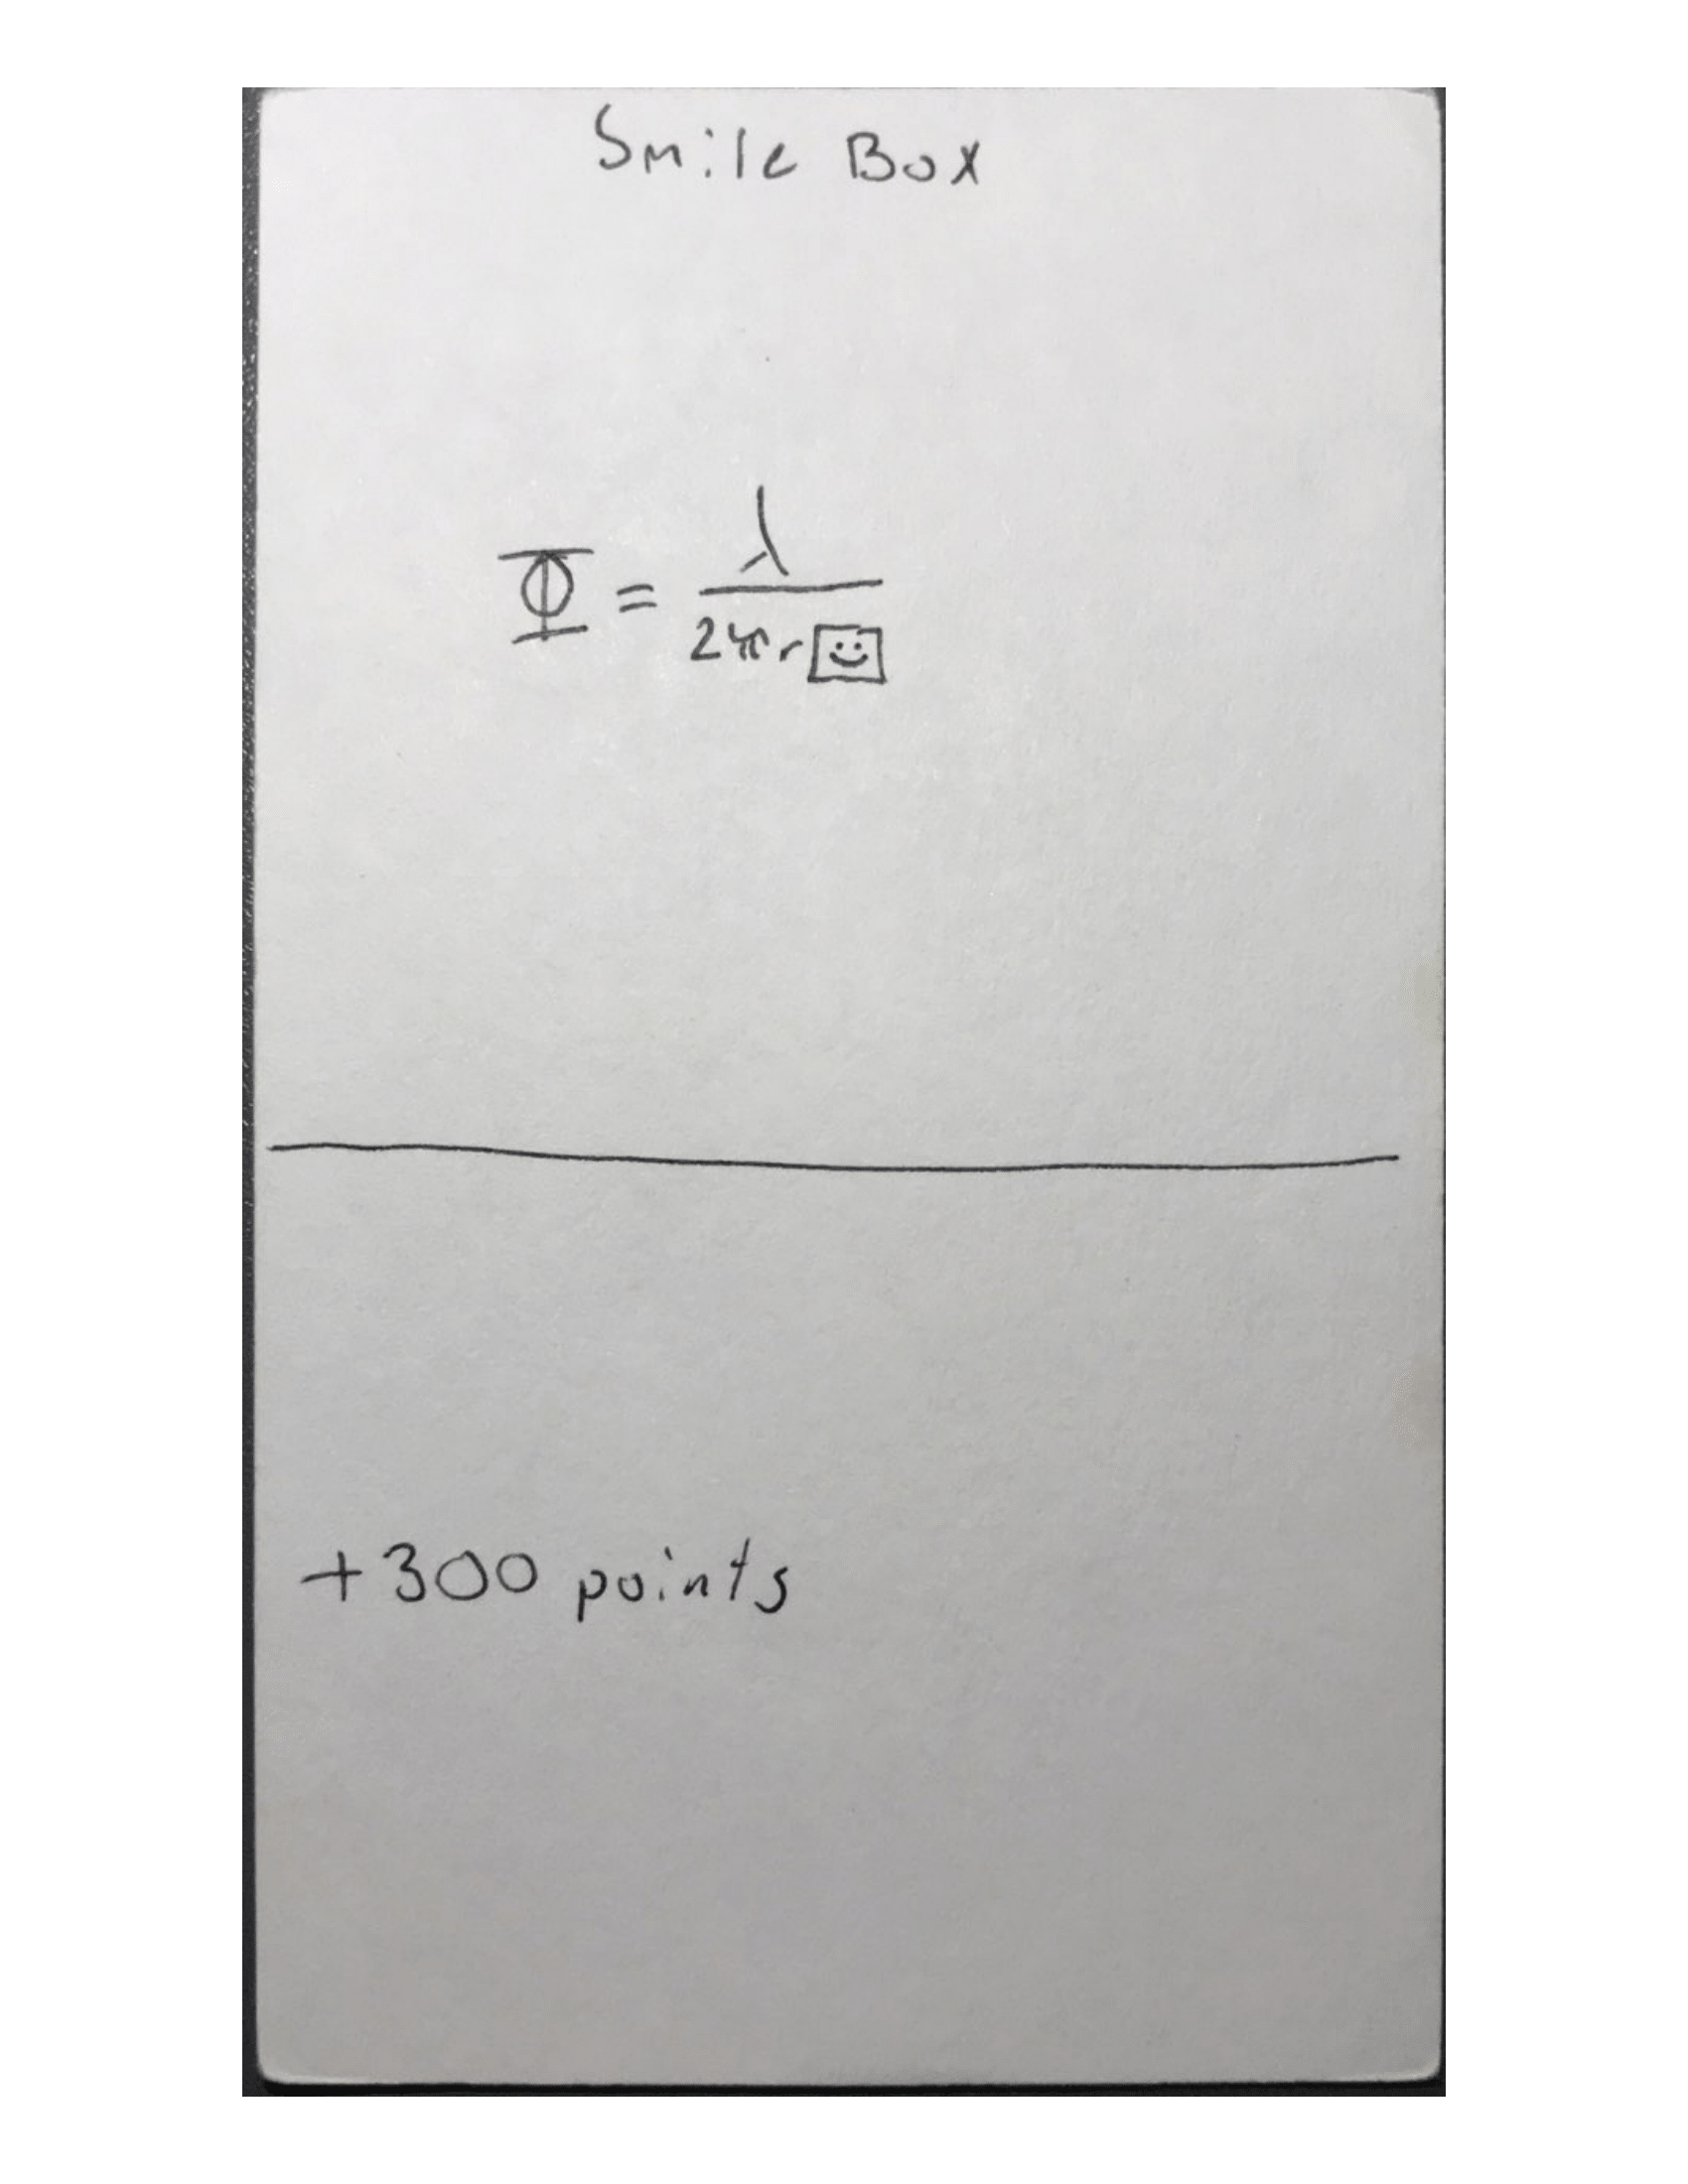 Smile Box
Φ = λ
2πr☺
+300 points